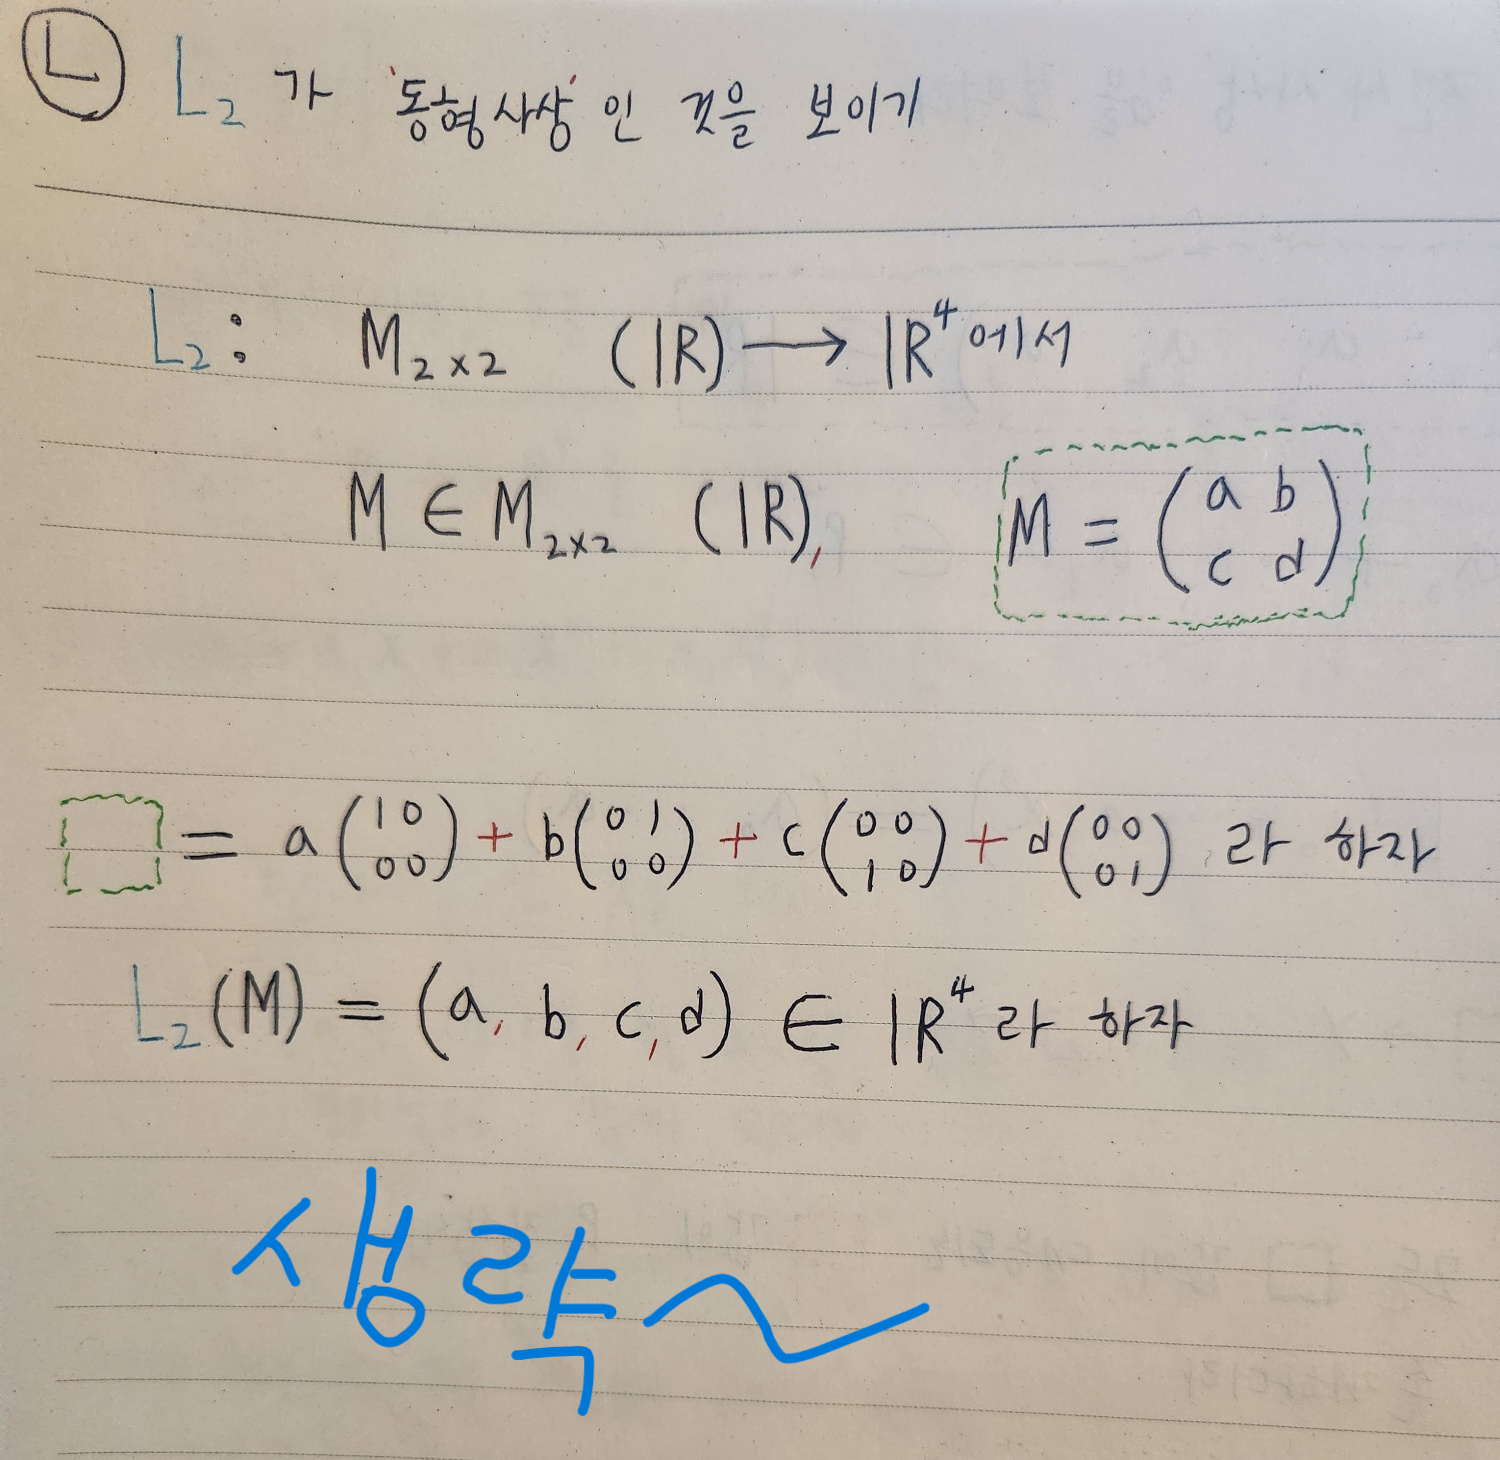 ㄴ L₂가 '동형사상'인 것을 보이기
L₂: M₂ₓ₂ (ℝ) → ℝ⁴에서
M ∈ M₂ₓ₂ (ℝ), M = (a b
c d)
□ = a(1 0
0 0) + b(0 1
0 0) + c(0 0
1 0) + d(0 0
0 1) 라 하자
L₂(M) = (a, b, c, d) ∈ ℝ⁴라 하자
생략~